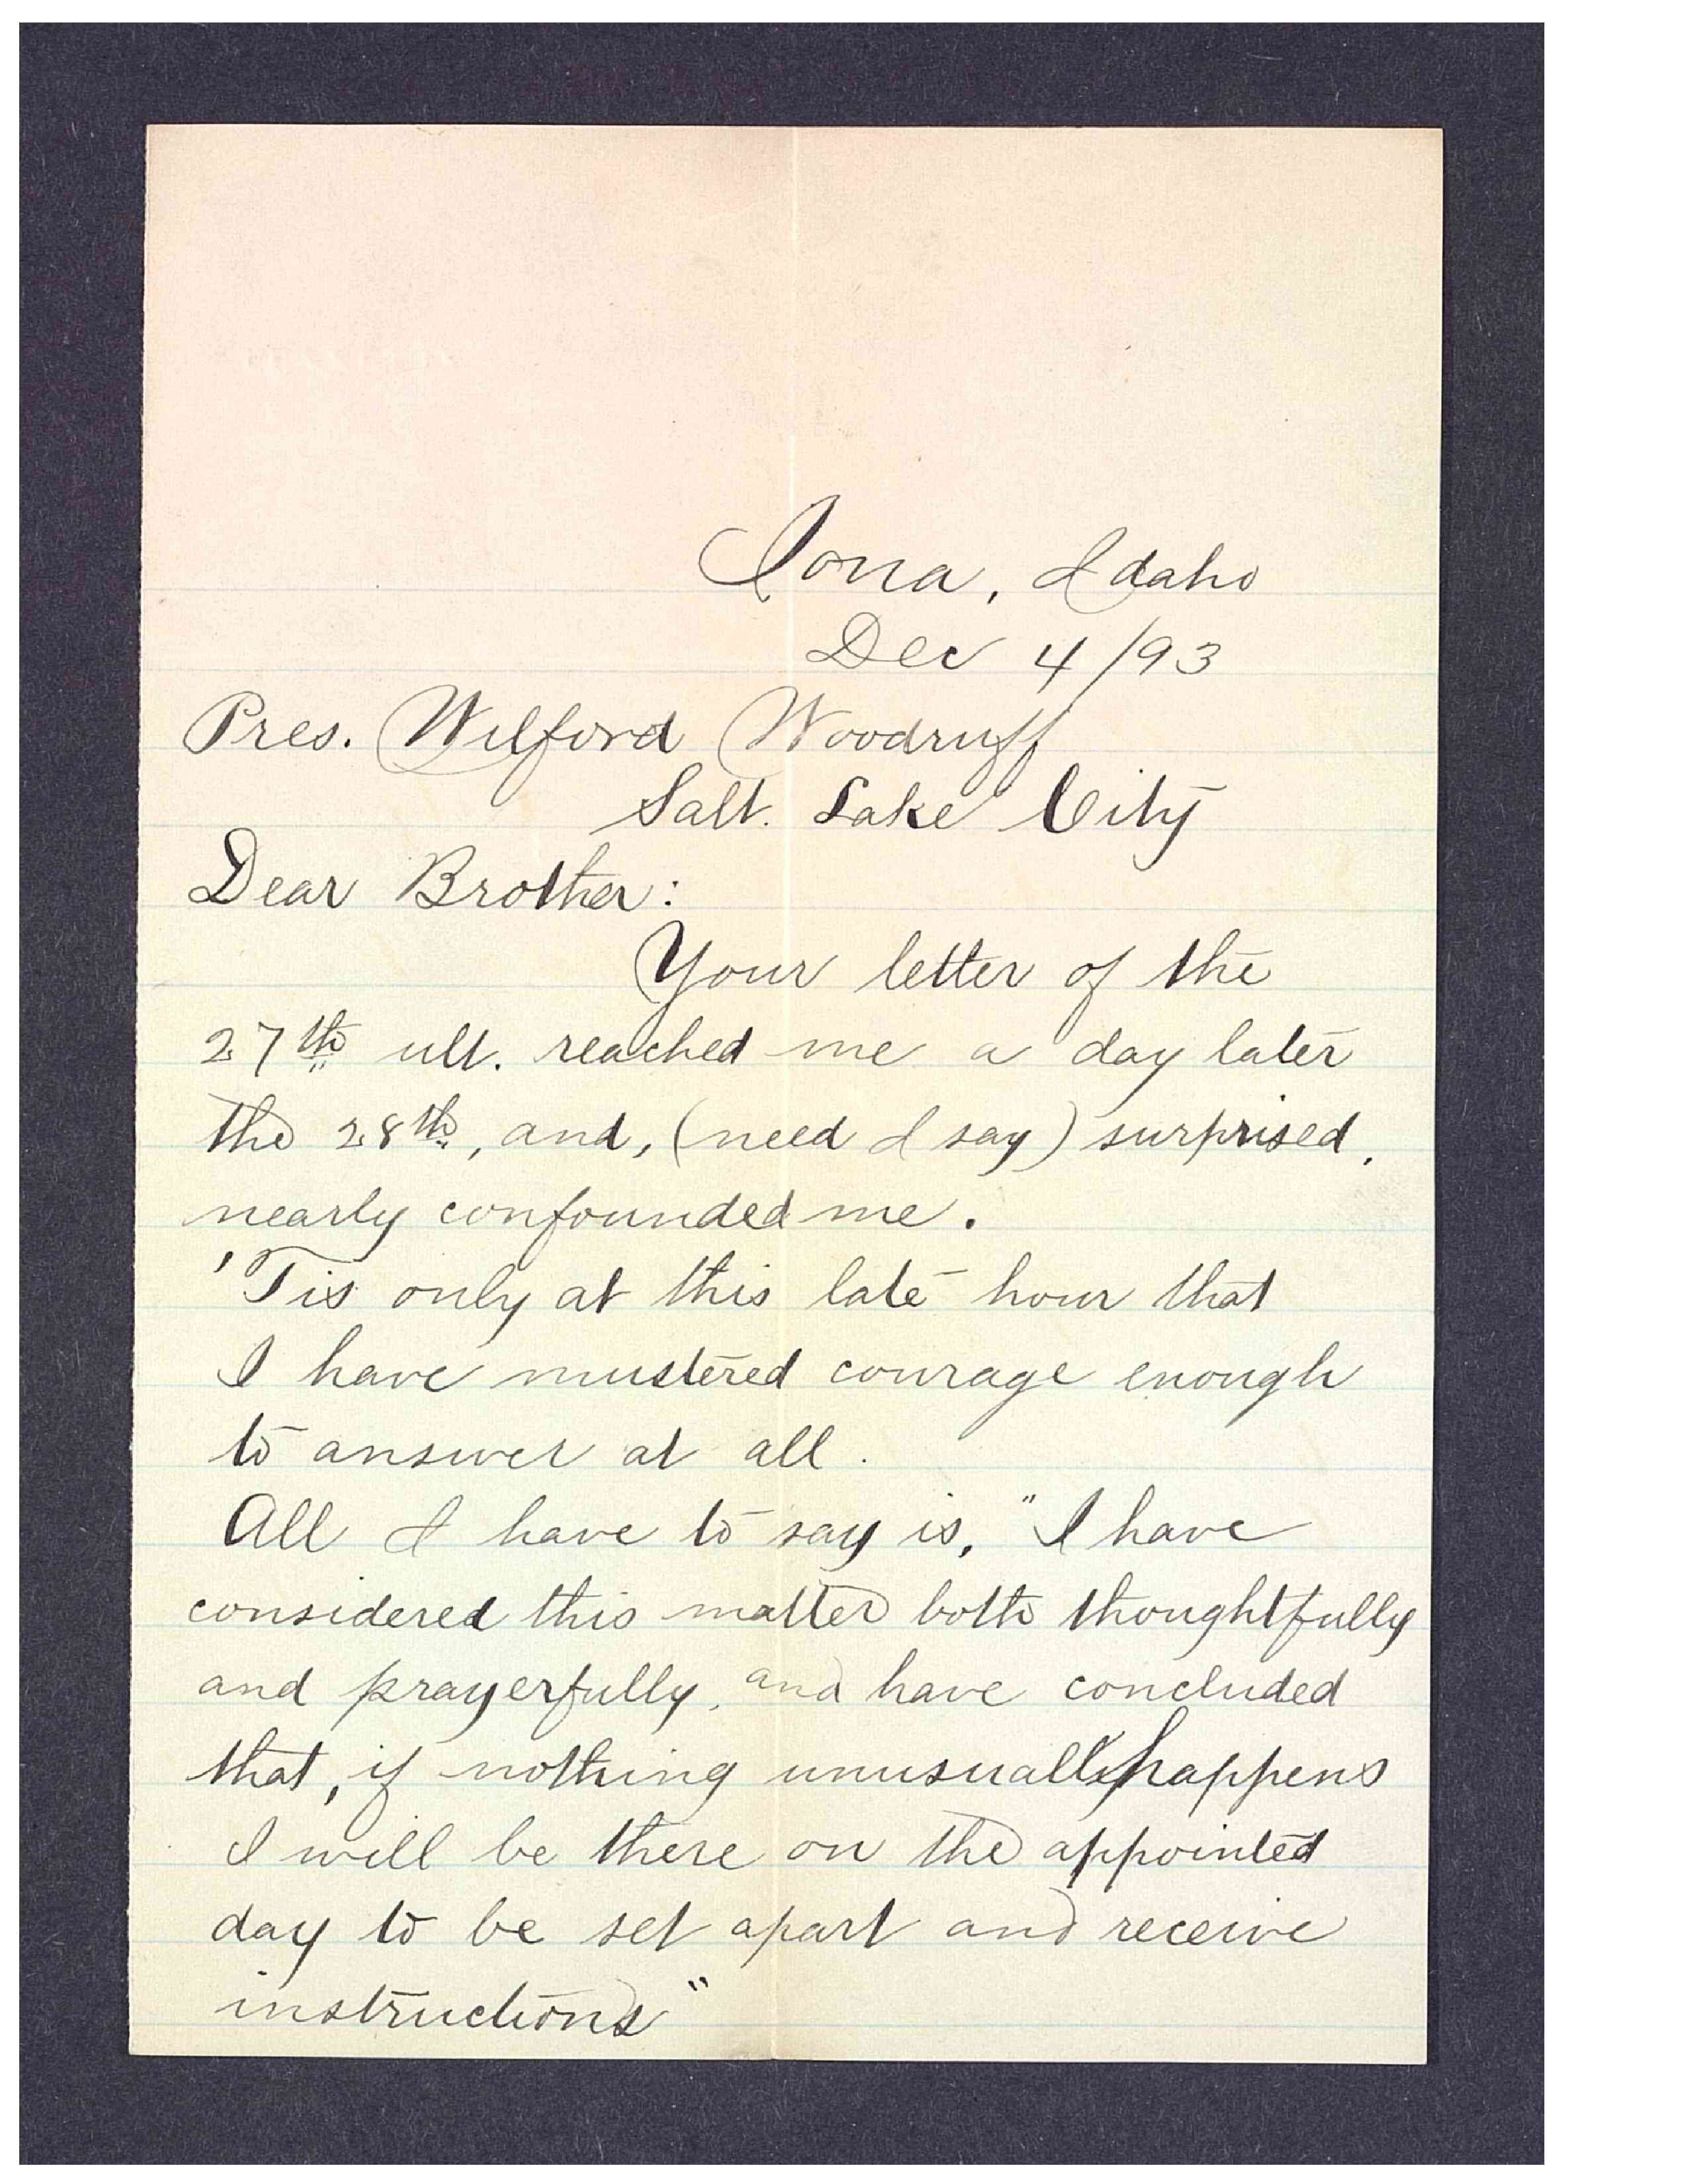 Iona, Idaho
Dec 4/93
Pres. Wilford Woodruff
Salt. Lake City
Dear Brother:
Your letter of the
27th ult. reached me a day later
the 28th, and, (need I say) surprised,
nearly confounded me.
'Tis only at this late hour that
I have mustered courage enough
to answer at all.
All I have to say is, "I have
considered this matter both thoughtfully
and prayerfully, and have concluded
that, if nothing unusually happens
I will be there on the appointed
day to be set apart and receive
instructions"